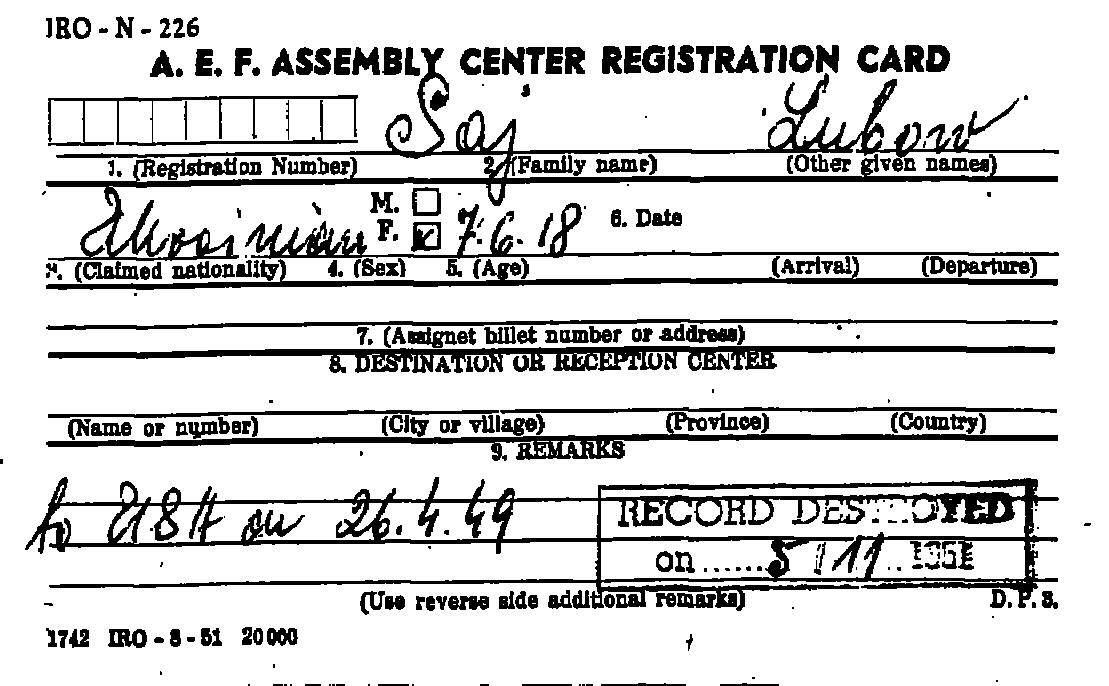 IRO - N - 226
A. E. F. ASSEMBLY CENTER REGISTRATION CARD
Saj Lubow
1. (Registration Number) 2. (Family name) (Other given names)
Ukrainian M. F. 7.6.18 6. Date
3. (Claimed nationality) 4. (Sex) 5. (Age) (Arrival) (Departure)
7. (Assignet billet number or address)
8. DESTINATION OR RECEPTION CENTER
(Name or number) (City or village) (Province) (Country)
9. REMARKS
to USA on 26.4.49
RECORD DESTROYED
on ....... 5 / 11 .. 1951
(Use reverse side additional remarks) D. P. S.
1742 IRO - 8 - 51 20 000